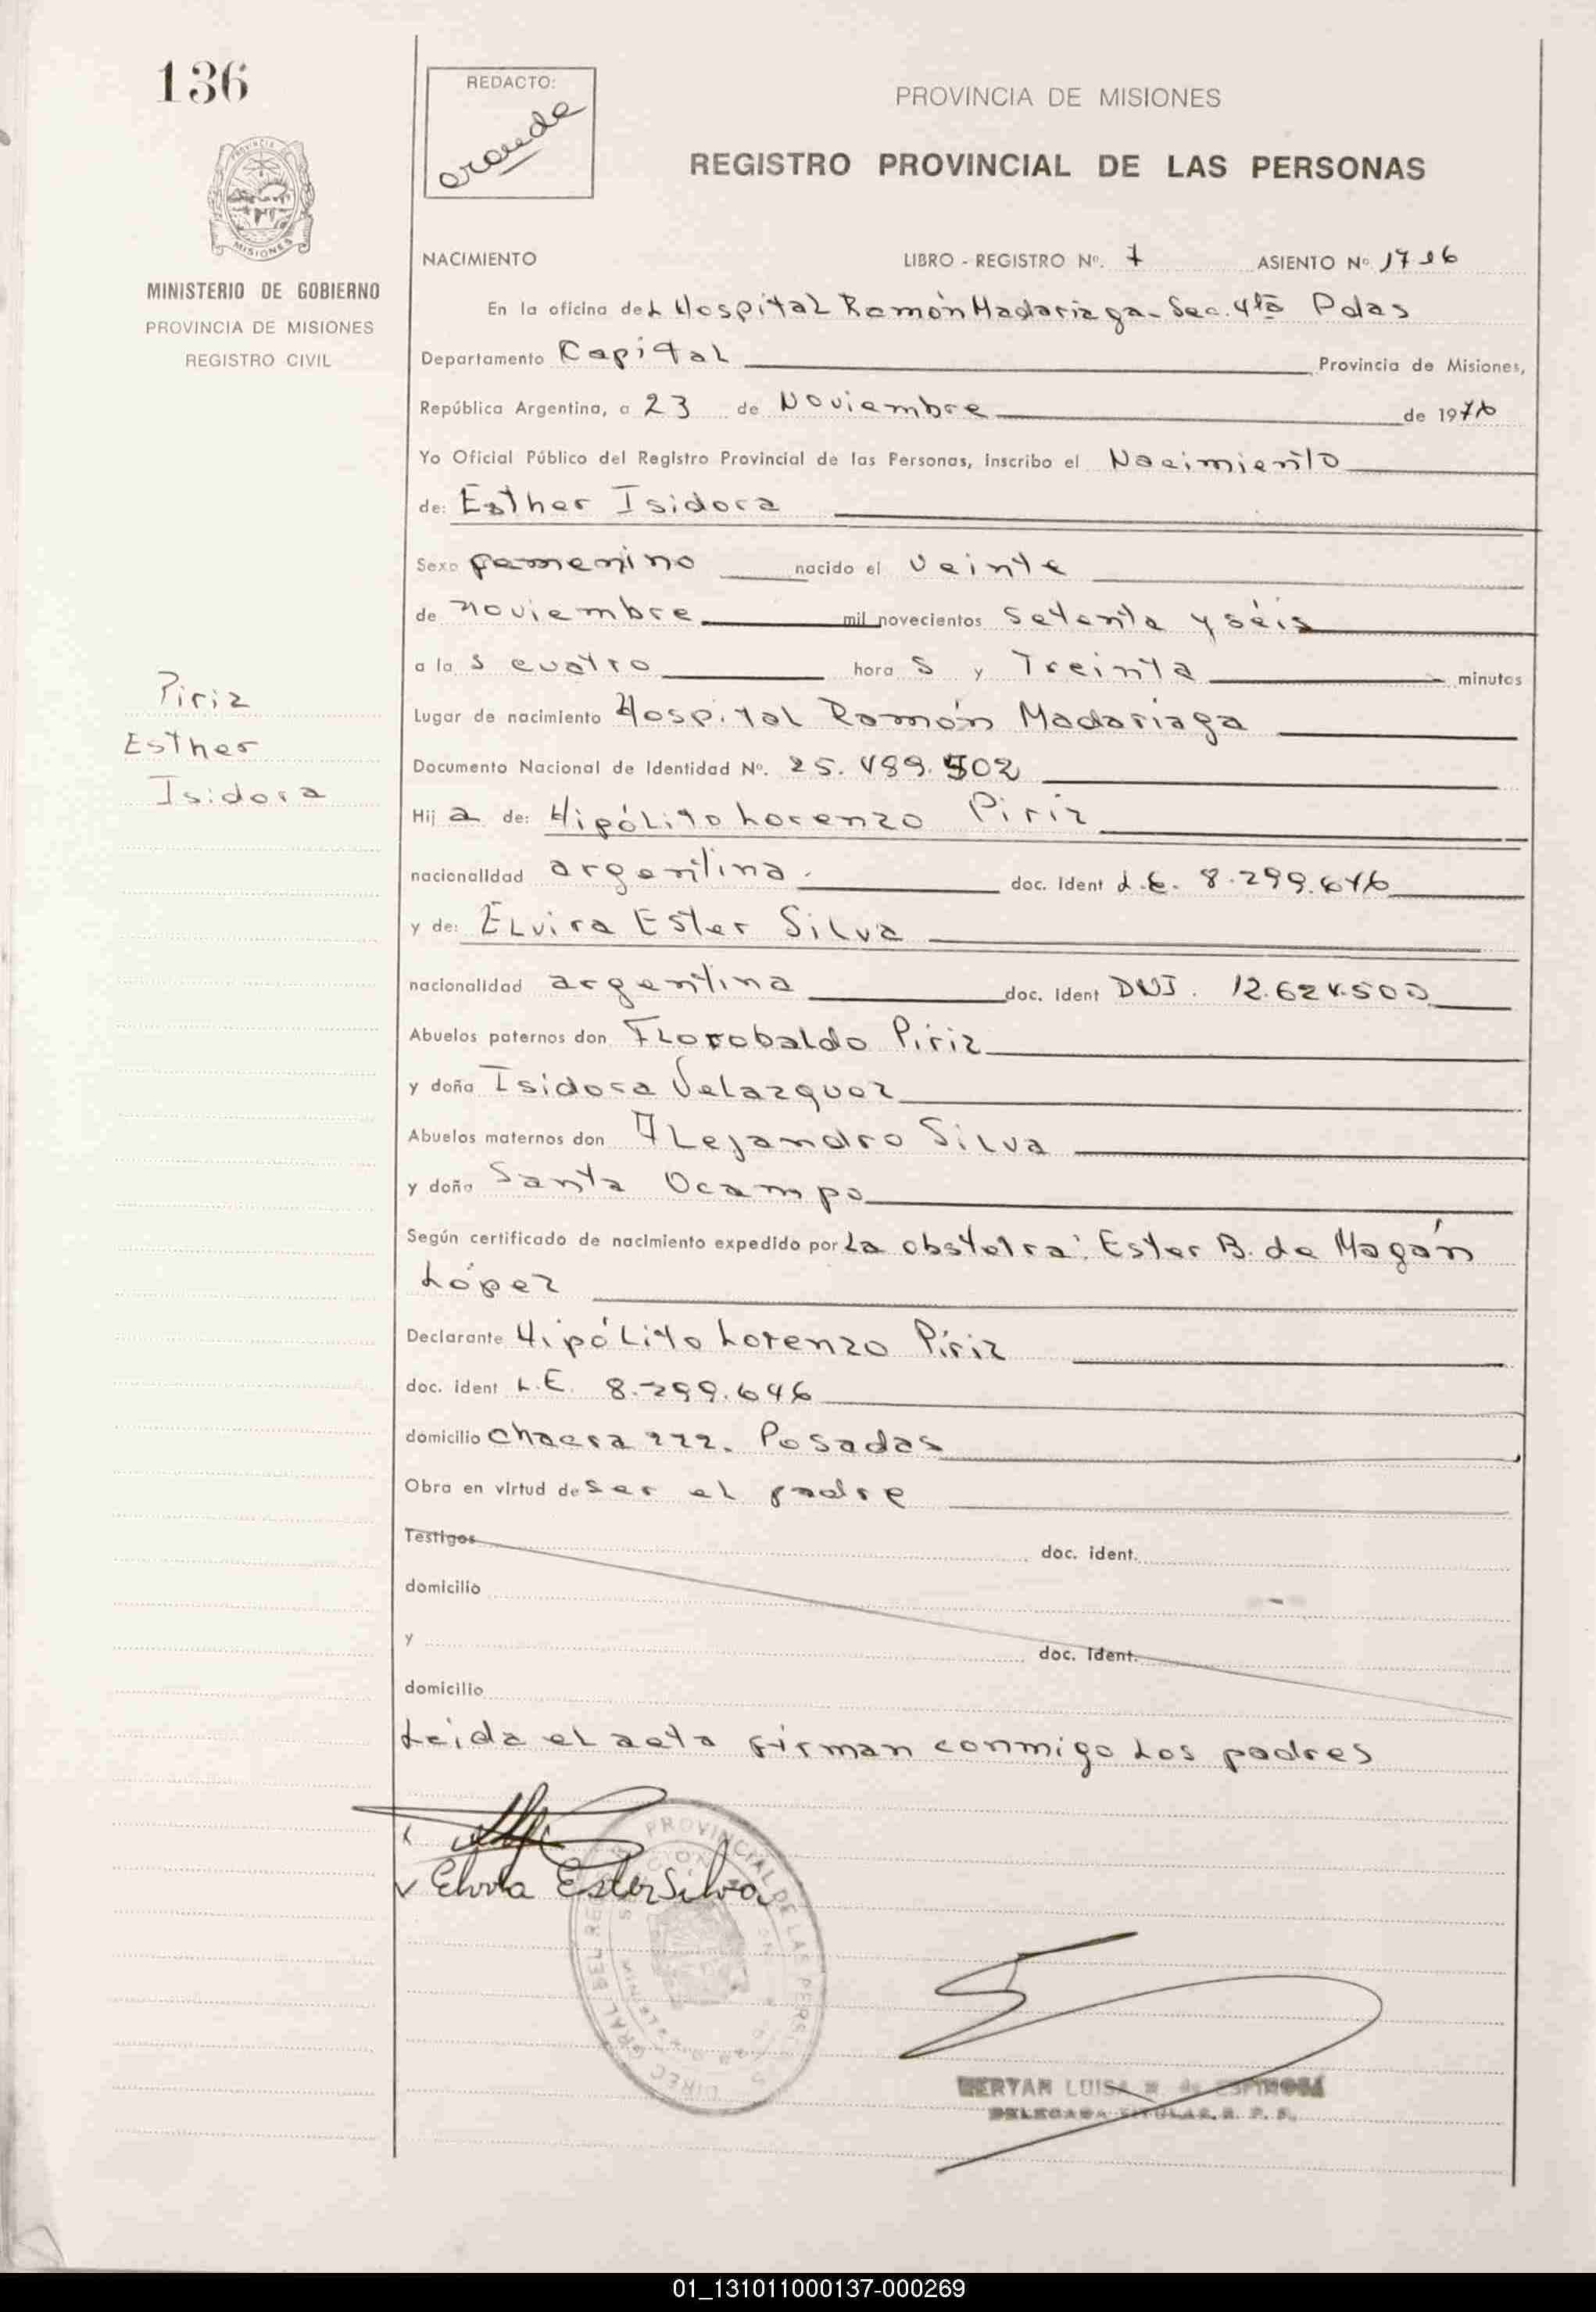 136
REDACTO:
PROVINCIA DE MISIONES
REGISTRO PROVINCIAL DE LAS PERSONAS
MISIONES
MINISTERIO DE GOBIERNO
PROVINCIA DE MISIONES
REGISTRO CIVIL
NACIMIENTO LIBRO - REGISTRO Nº. 7 ASIENTO Nº 1716
En la oficina del Hospital Ramón Madariaga - Sec. 4ta Pdas
Departamento Capital Provincia de Misiones,
República Argentina, a 23 de Noviembre de 1976
Yo Oficial Público del Registro Provincial de las Personas, inscribo el Nacimiento
de: Esther Isidora
Sexo femenino nacido el veinte
de noviembre mil novecientos setenta y séis
a las cuatro horas y Treinta minutos
Lugar de nacimiento Hospital Ramón Madariaga
Documento Nacional de Identidad Nº. 25.499.502
Piriz
Esther
Isidora
Hija de: Hipólito Lorenzo Piriz
nacionalidad argentina. doc. Ident L.E. 8.299.646
y de: Elvira Ester Silva
nacionalidad argentina doc. Ident DNI. 12.624.500
Abuelos paternos don Florobaldo Piriz
y doña Isidora Velazquez
Abuelos maternos don Alejandro Silva
y doña Santa Ocampo
Según certificado de nacimiento expedido por La obstetra: Ester B. de Magán
López
Declarante Hipólito Lorenzo Píriz
doc. ident L.E. 8.299.646
domicilio chacra 222. Posadas
Obra en virtud de ser el padre
Testigos doc. ident.
domicilio
y doc. Ident.
domicilio
Leida el acta firman conmigo los padres
Elvira Ester Silva
PROVINCIAL DE LAS PERS
LUISA de ESPINOSA
DELEGADA TITULAR. R. P. P.
01_131011000137-000269